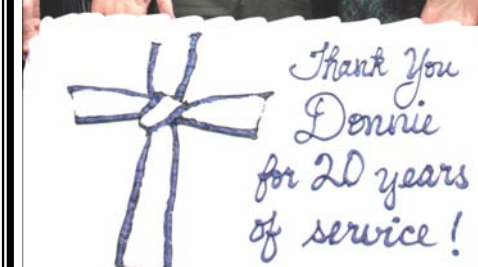 Thank You
Donnie
for 20 years
of service!